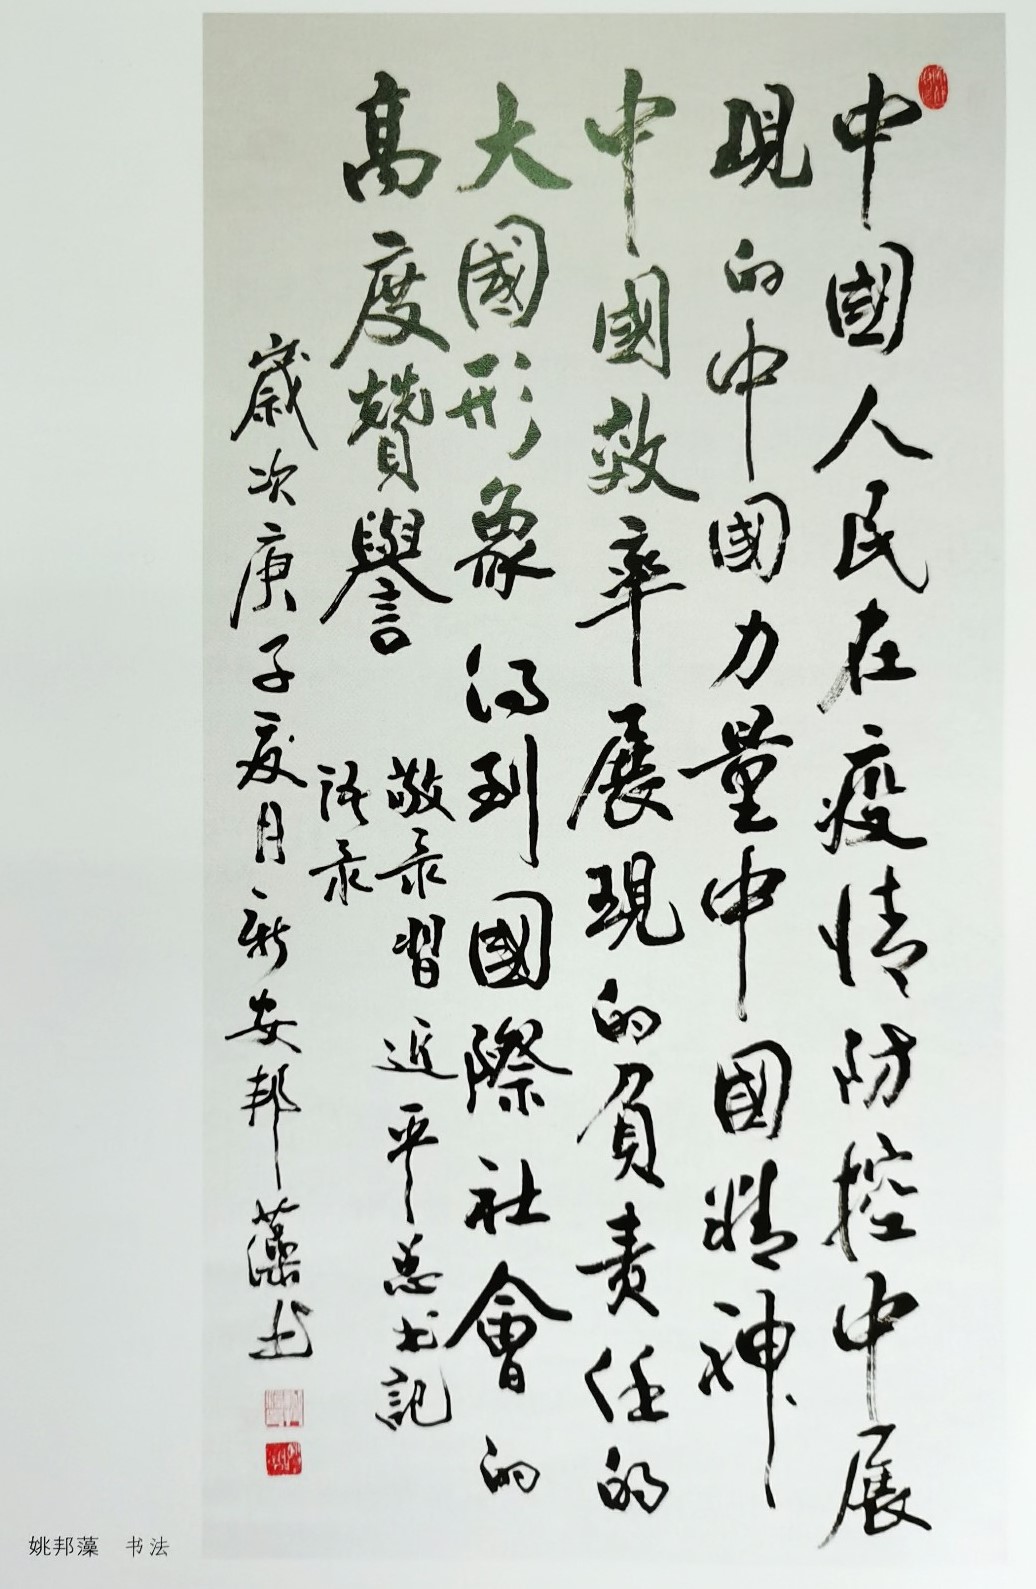 中國人民在疫情防控中展
現的中國力量中國精神
中國效率展現的負責任的
大國形象得到國際社會的
高度贊譽
敬录習近平总书記
語录
歲次庚子夏月新安邦藻书
姚邦藻 书法